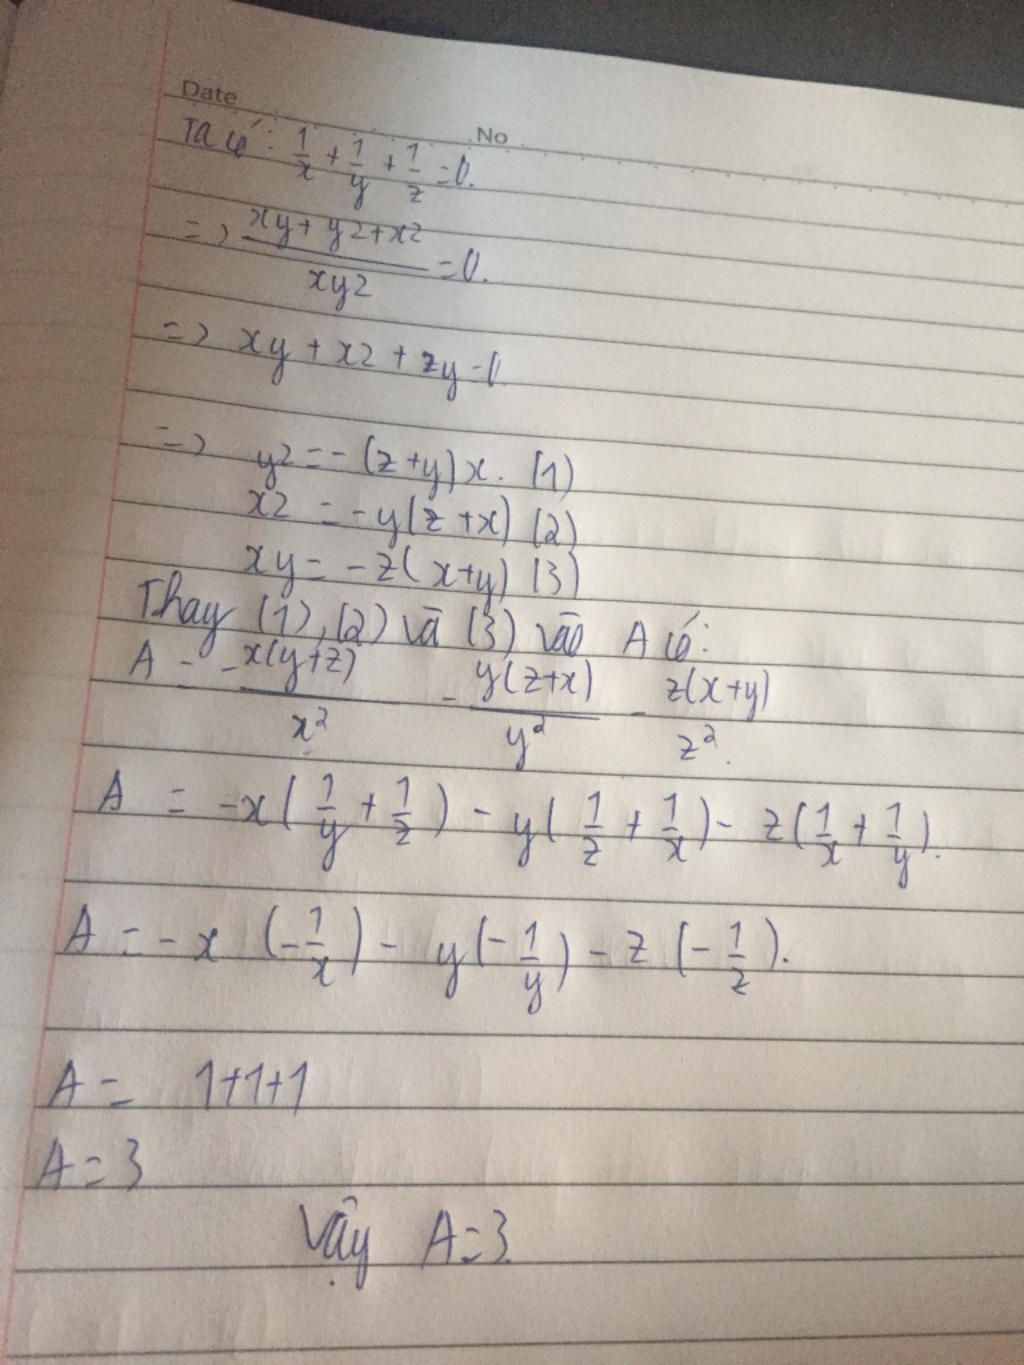 Date
No
Ta có: 1/x + 1/y + 1/z = 0.
=> (xy + yz + xz)/(xyz) = 0.
=> xy + xz + zy = 0
=> yz = -(z+y)x. (1)
xz = -y(z+x) (2)
xy = -z(x+y) (3)
Thay (1), (2) và (3) vào A có:
A = -x(y+z)/x² - y(z+x)/y² - z(x+y)/z².
A = -x(1/y + 1/z) - y(1/z + 1/x) - z(1/x + 1/y).
A = -x (-1/x) - y(-1/y) - z(-1/z).
A = 1+1+1
A = 3
Vậy A = 3.